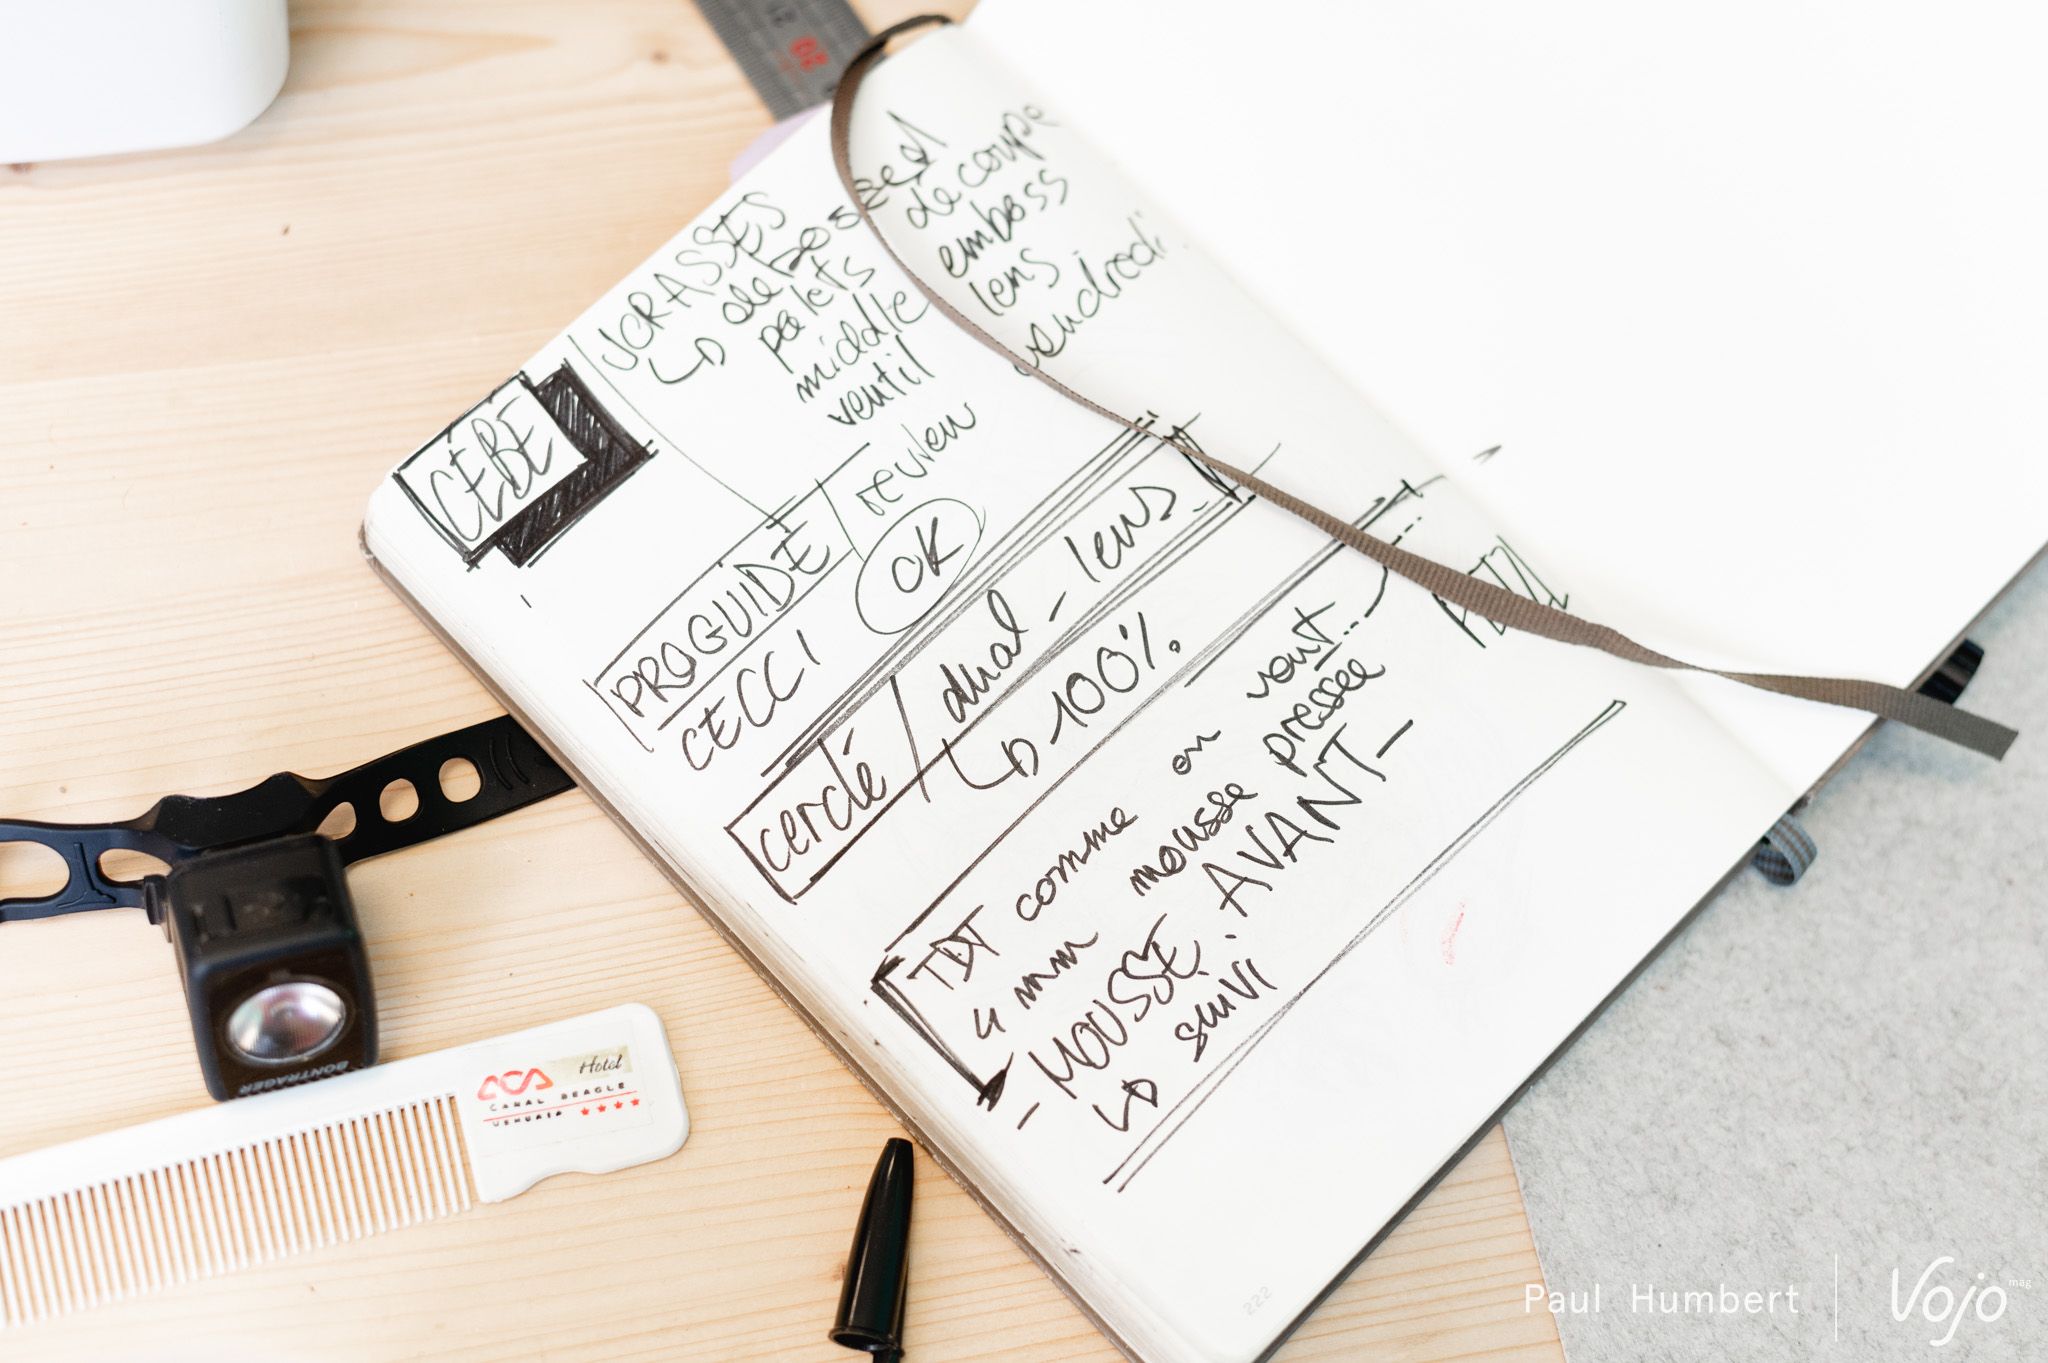 CÉBÉ
JORASSES
palets
middle
ventil
decoupe
emboss
lens
vendredi
PROGUIDE / review
CECCI OK
cerclé / dual - lens
100%.
TDT comme on vout
4 mm mousse pressée
- MOUSSE. AVANT -
suivi
222
BONTRAGER
ACA Hotel
CANAL BEAGLE
USHUAIA
Paul Humbert
Vojo mag